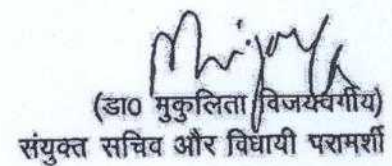 (डा0 मुकुलिता विजयवर्गीय)
संयुक्त सचिव और विधायी परामर्शी